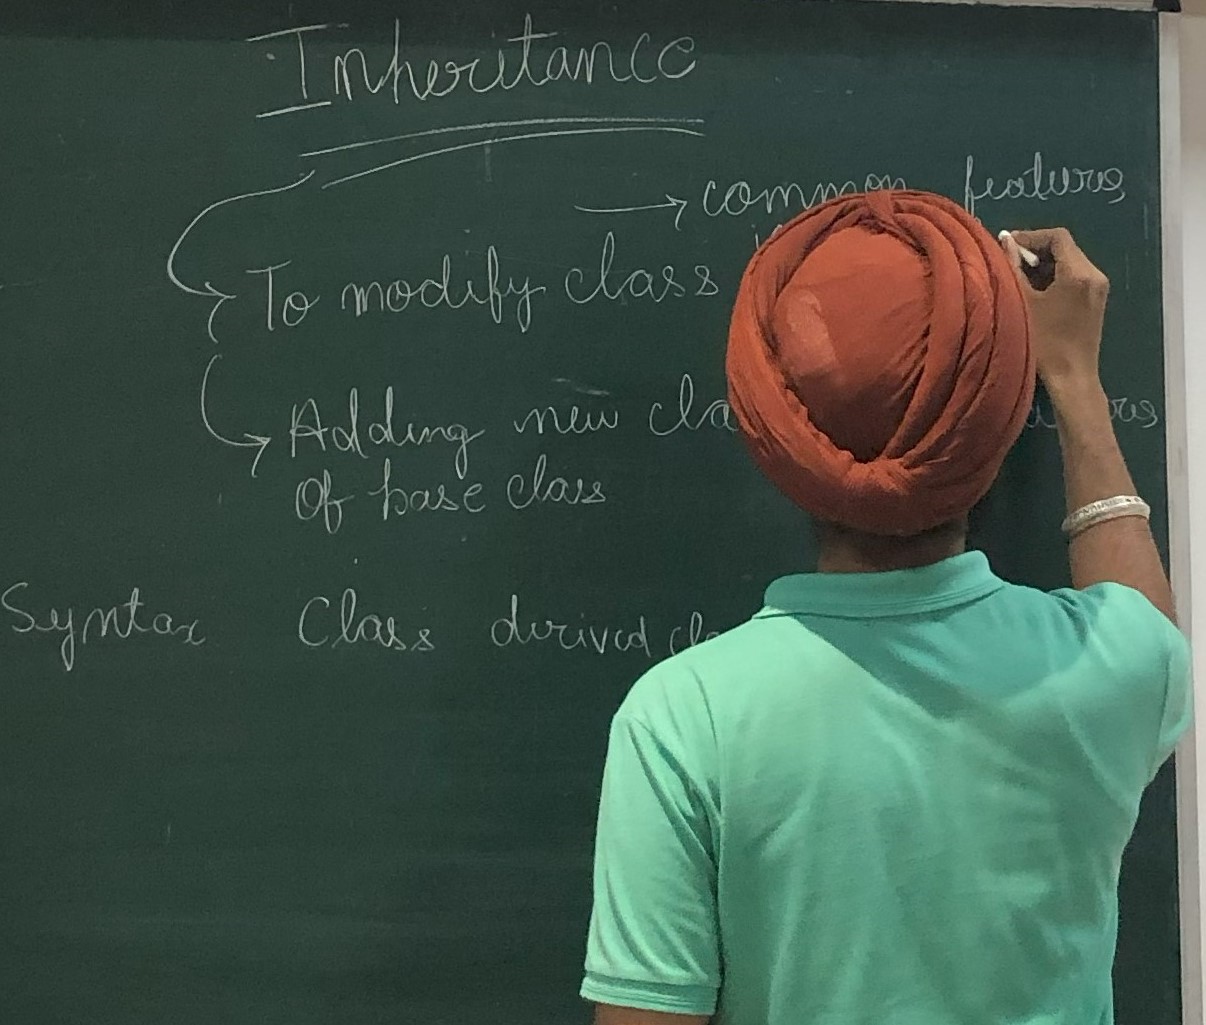 Inheritance
→ common features
To modify class
Adding new
of base class
Syntax Class derived